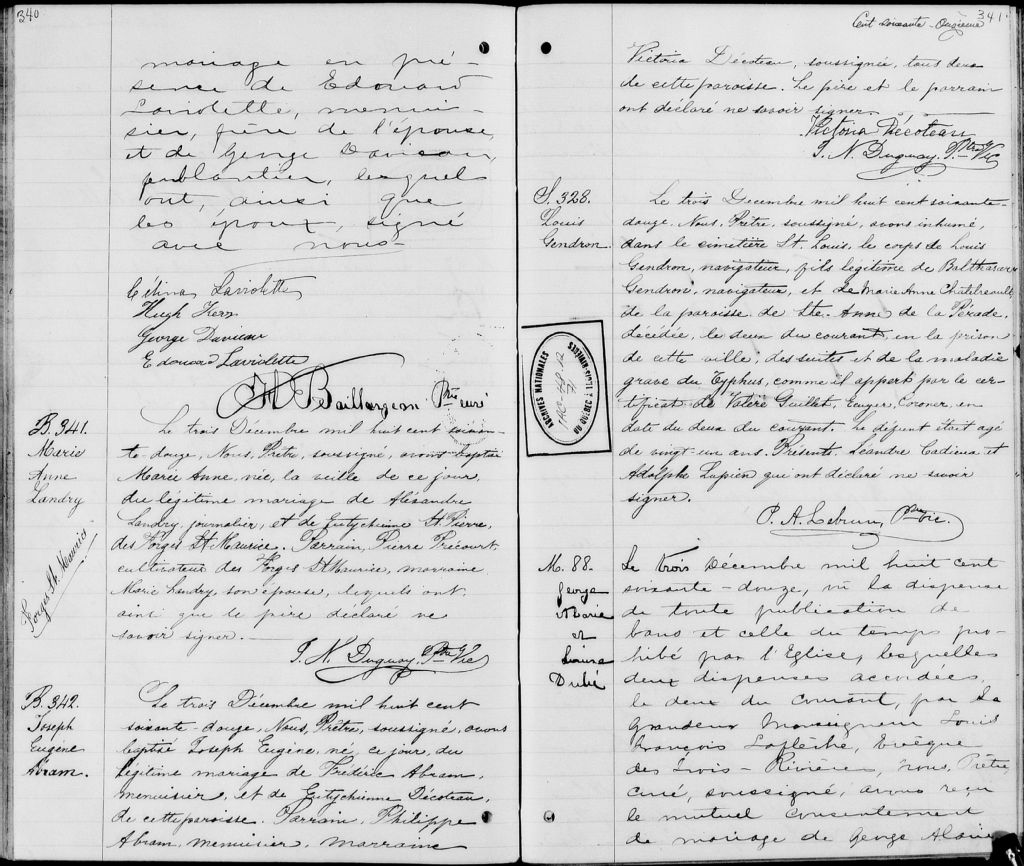 340
mariage en pré-
sence de Edouard
Laviolette, menui-
sier, père de l'épouse,
et de George Davison,
ferblantier, lesquels
ont, ainsi que
les époux, signé
avec nous
Célina Laviolette
Hugh Kerr
George Davison
Edouard Laviolette
Baillargeon Ptre curé
B. 341.
Marie
Anne
Landry
Forges St. Maurice
Le trois Décembre mil huit cent soixan-
te-douze, Nous, Prêtre, soussigné, avons baptisé
Marie Anne, née, la veille de ce jour,
du légitime mariage de Aléxandre
Landry, journalier, et de Eutychienne St. Pierre,
des Forges St. Maurice. Parrain, Pierre Précourt,
cultivateur des Forges St. Maurice, marraine
Marie Landry, son épouse, lesquels ont,
ainsi que le père déclaré ne
savoir signer.
J. N. Duguay, Ptre Vic
B. 342.
Joseph
Eugène
Abram.
Le trois Décembre mil huit cent
soixante-douze, Nous, Prêtre, soussigné, avons
baptisé Joseph Eugène, né, ce jour, du
légitime mariage de Frédéric Abram,
menuisier, et de Eutychienne Décoteau,
de cette paroisse. Parrain, Philippe
Abram, menuisier, marraine
341
Cent soixante-Onzième
Victoria Décoteau, soussignée, tous deux
de cette paroisse. Le père et le parrain
ont déclaré ne savoir signer.
Victoria Décoteau
J. N. Duguay, Ptre Vic
S. 328.
Louis
Gendron.
Le trois Decembre mil huit cent soixante-
douze, Nous, Prêtre, soussigné, avons inhumé,
dans le cimetière St. Louis, le corps de Louis
Gendron, navigateur, fils légitime de Balthasar
Gendron, navigateur, et de Marie Anne Chatelreault
de la paroisse de Ste. Anne de la Pérade,
décédée, le deux du courant, en la prison
de cette ville, des suites et de la maladie
grave du Typhus, comme il appert par le cer-
tificat de Valère Guillet, Ecuyer, Coroner, en
date du deux du courant. Le défunt était agé
de vingt-un ans. Présents Léandre Cadieux et
Adolphe Lupien qui ont déclaré ne savoir
signer.
P. A. Lebrun, Ptre vic.
ARCHIVES NATIONALES
DU QUÉBEC À
M. 88.
George
Alarie
et
Louise
Dubé
Le trois Décembre mil huit cent
soixante-douze, vu la dispense
de toute publication de
bans et celle du temps pro-
hibé par l'Eglise, lesquelles
deux dispenses accordées,
le deux du courant, par Sa
Grandeur Monseigneur Louis
François Laflèche, Evêque
des Trois-Rivières, nous, Prêtre,
curé, soussigné, avons reçu
le mutuel consentement
de mariage de George Alarie